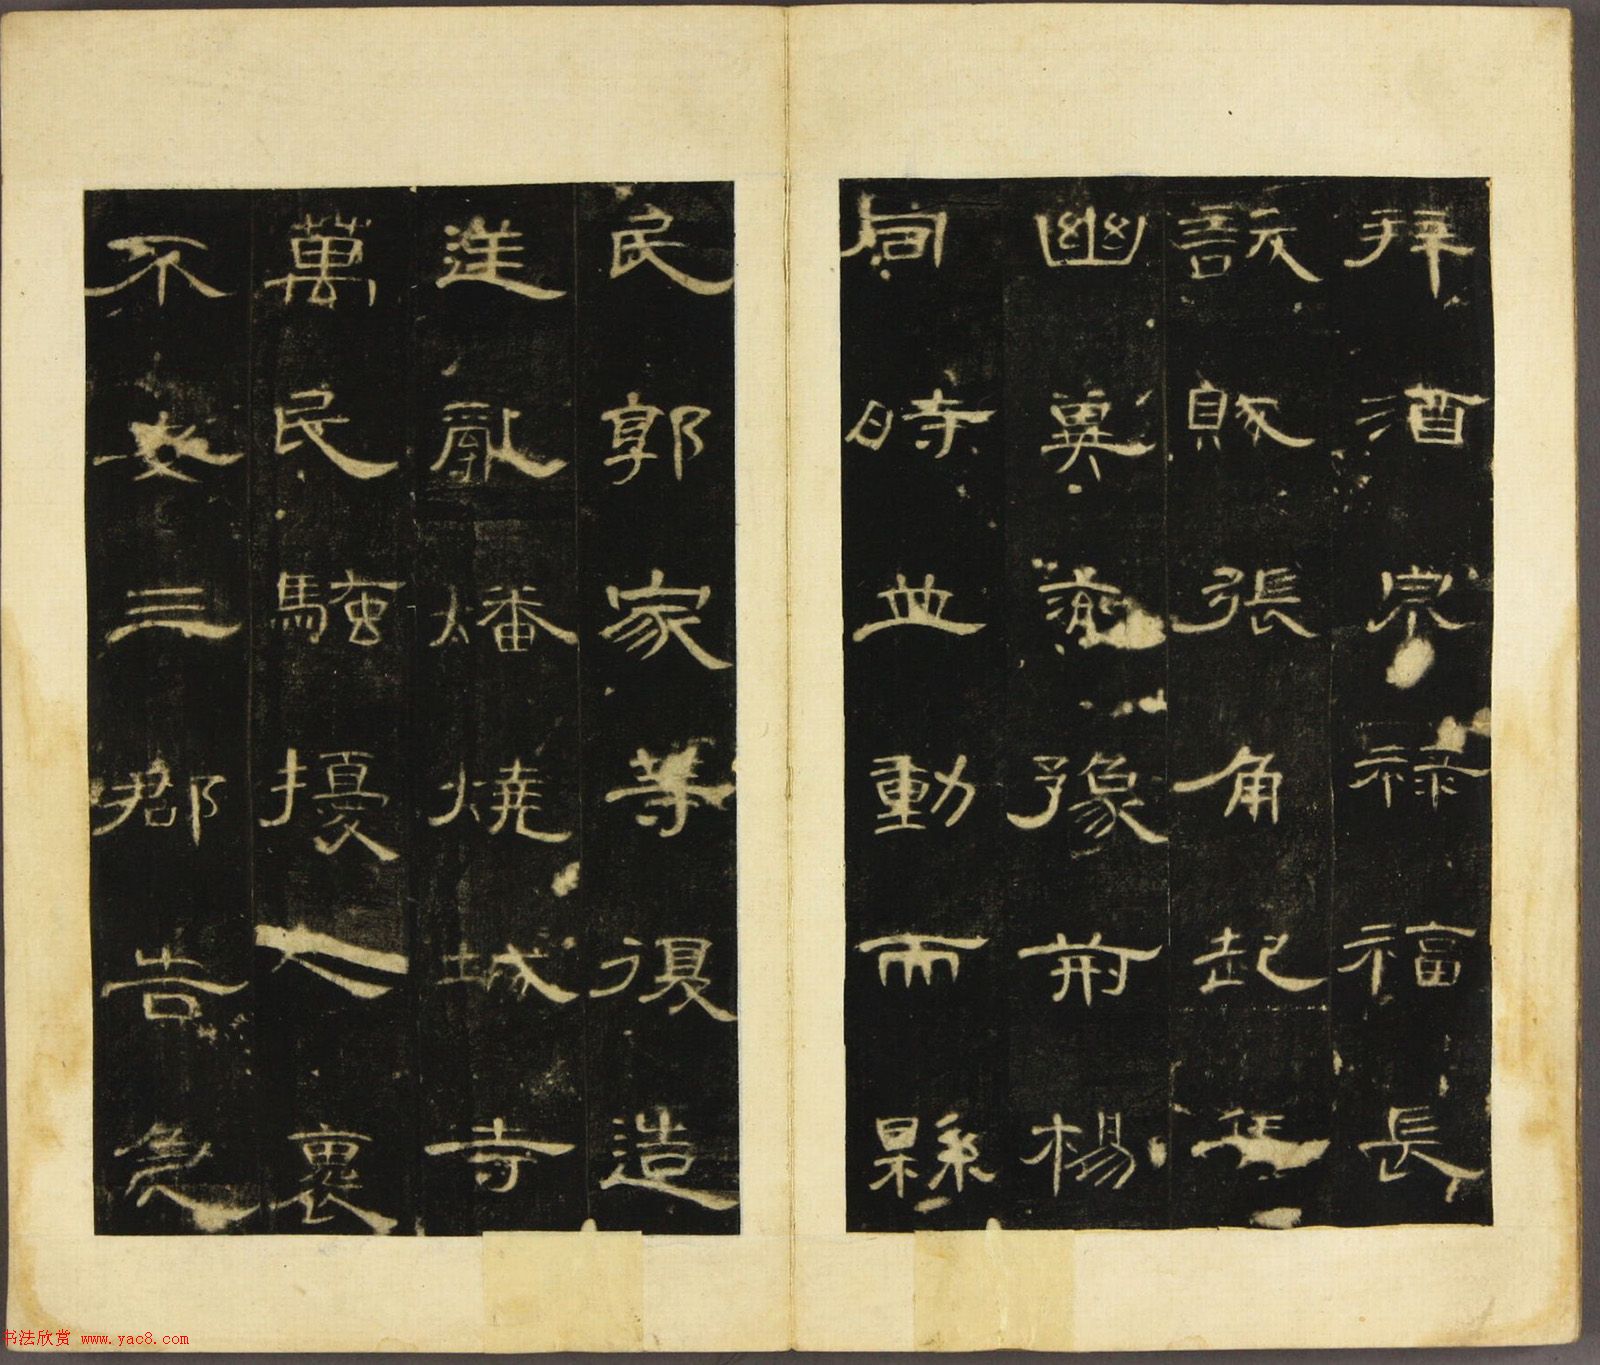 拜酒泉祿福長
訞賊張角起兵
幽冀兗豫荊楊
同時並動而縣
民郭家等復造
逆亂燔燒城寺
萬民騷擾人裹
不安三郡告急
书法欣赏 www.yac8.com